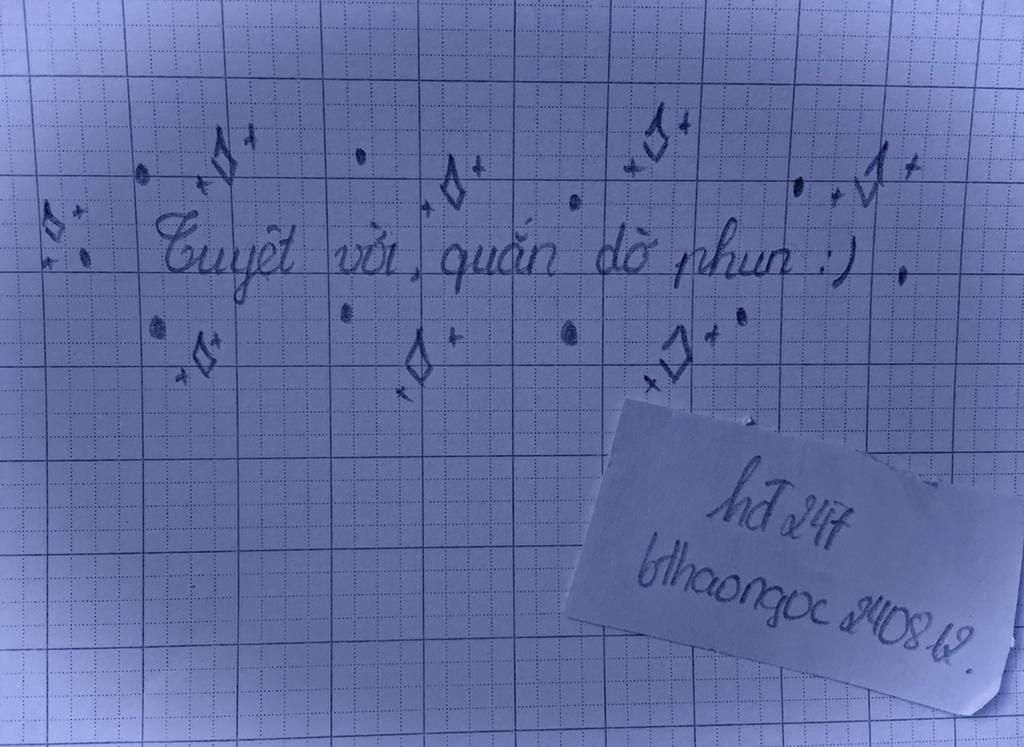 Tuyệt vời, quắn dờ phun :)
hđ 247
bthaongoc 2408 62.